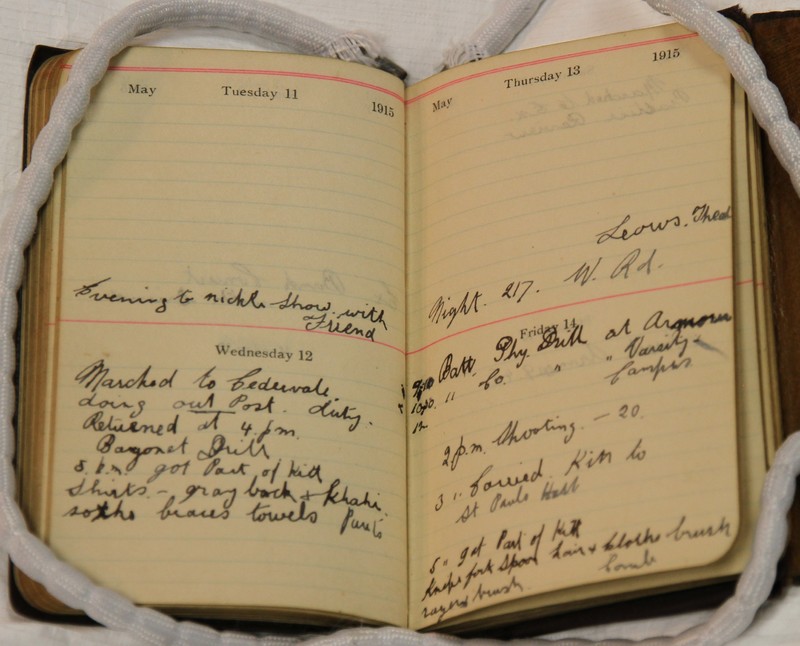 May Tuesday 11 1915
Evening to nickle show with
Friend
Wednesday 12
Marched to Cedervale
doing out Post. duty.
Returned at 4. p.m.
Bayonet Drill
5. p.m. got Part of Kitt
Shirts - gray back & Khaki
socks braces towels Pants
May Thursday 13 1915
Leows. Thea
Night. 217. W. Rd.
Friday 14
Batt Phy. Drill at Armour
10.30. " Co. " " Varsity
12 Campus.
2 p.m. Shooting. - 20.
3 " Carried Kitt to
St Pauls Hall
5 " got Part of Kitt
Knife fork Spoon hair & Cloths brush
Comb
razer brush.